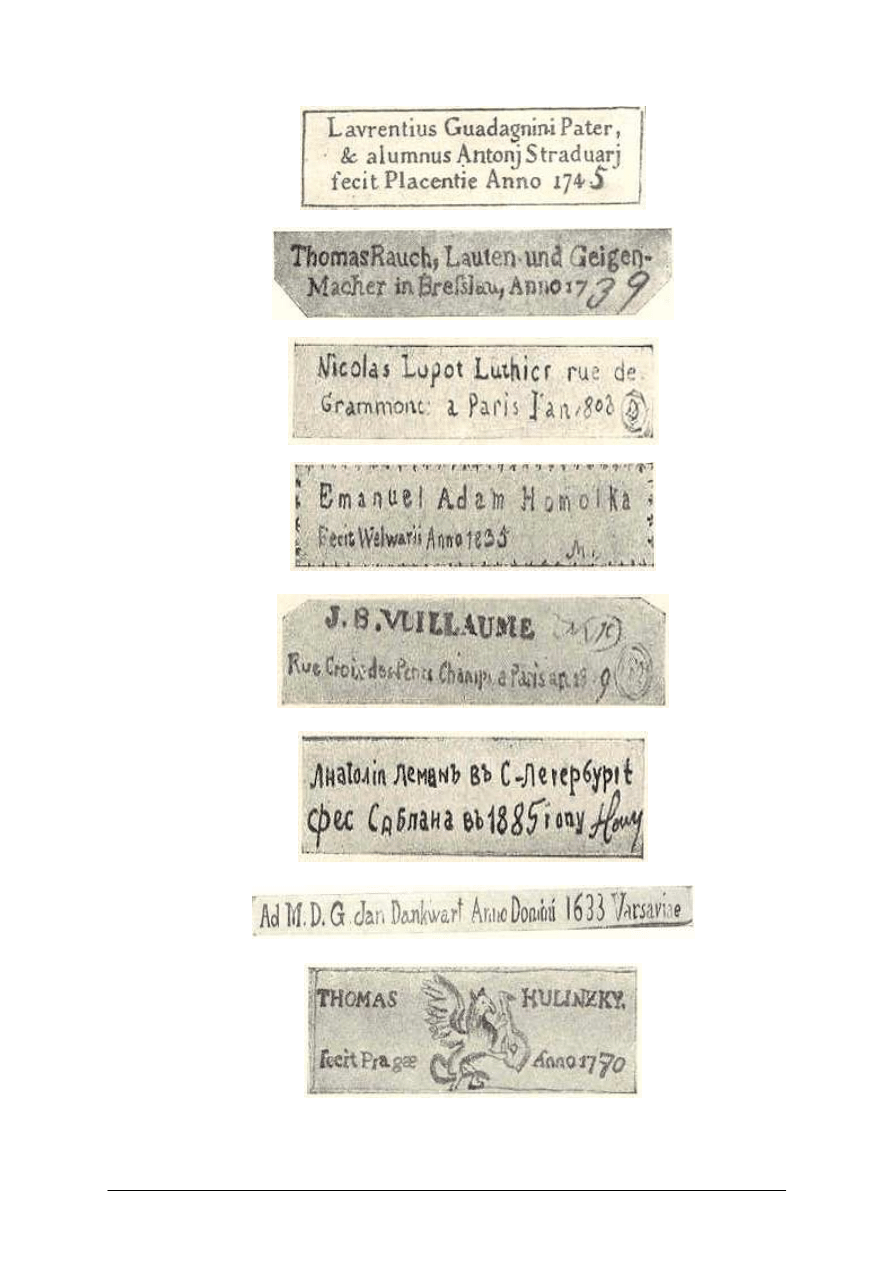 Lavrentius Guadagnini Pater,
& alumnus Antonj Straduarj
fecit Placentie Anno 1745
Thomas Rauch, Lauten und Geigen-
Macher in Breſslau, Anno 1739
Nicolas Lupot Luthier rue de
Grammont a Paris l'an 1803
Emanuel Adam Homolka
Fecit Welwarii Anno 1835
J. B. VUILLAUME
Rue Croix des Petits Champs a Paris
Анатолiп Леманъ въ С-Летербургѣ
въ 1885 году
Ad M. D. G Jan Dankwart Anno Domini 1633 Varsaviae
THOMAS HULINZKY.
fecit Pragæ Anno 1770